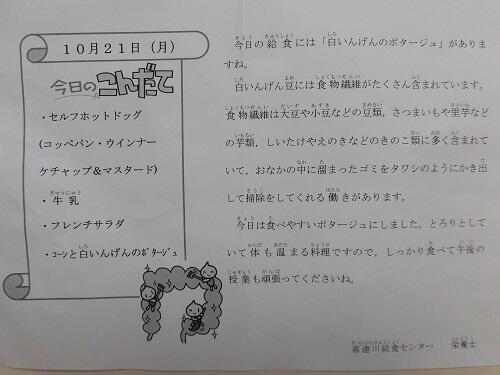 10月21日（月）
今日のこんだて
・セルフホットドッグ
(コッペパン・ウインナー
ケチャップ＆マスタード)
・牛乳
・フレンチサラダ
・ｺｰﾝと白いんげんのﾎﾟﾀｰｼﾞｭ
今日の給食には「白いんげんのポタージュ」がありま
すね。
白いんげん豆には食物繊維がたくさん含まれています。
食物繊維は大豆や小豆などの豆類，さつまいもや里芋など
の芋類，しいたけやえのきなどのきのこ類に多く含まれて
いて，おなかの中に溜まったゴミをタワシのようにかき出
して掃除をしてくれる働きがあります。
今日は食べやすいポタージュにしました。とろりとして
いて体も温まる料理ですので，しっかり食べて午後の
授業も頑張ってくださいね。
喜連川給食センター　栄養士